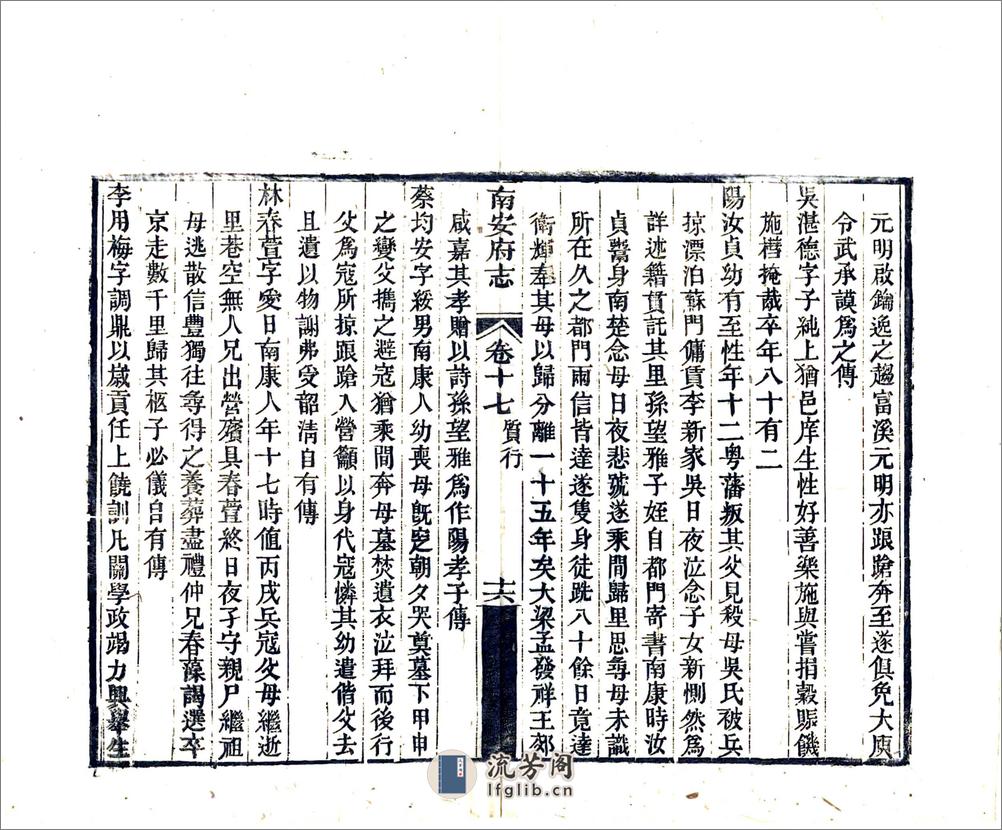 元明啟鑰逸之趨富溪元明亦踉蹌奔至遂俱免大庾
令武承謨爲之傳
吳湛德字子純上猶邑庠生性好善樂施與嘗捐穀賑饑
施槥掩胾卒年八十有二
陽汝貞幼有至性年十二粤藩叛其父見殺母吳氏被兵
掠漂泊蘇門傭賃李新家吳日夜泣念子女新惻然爲
詳述籍貫託其里孫望雅子姪自都門寄書南康時汝
貞鬻身南楚念母日夜悲號遂乘間歸里思尋母未識
所在久之都門兩信皆達遂隻身徒跣八十餘日竟達
衛輝奉其母以歸分離一十五年矣大梁孟發祥王郊
咸嘉其孝贈以詩孫望雅爲作陽孝子傳
南安府志
卷十七
質行
十六
蔡均安字綏男南康人幼喪母旣定朝夕哭奠墓下甲申
之變父攜之避寇猶乘間奔母墓焚遺衣泣拜而後行
父爲寇所掠踉蹌入營籲以身代寇憐其幼遣偕父去
且遺以物謝弗受韶淸自有傳
林春萱字愛日南康人年十七時値丙戌兵寇父母繼逝
里巷空無人兄出營殯具春萱終日夜孑守親尸繼祖
母逃散信豐獨往尋得之養葬盡禮仲兄春藻謁選卒
京走數千里歸其柩子必儀自有傳
李用梅字調鼎以歲貢任上饒訓凡關學政竭力興舉生
流芳阁
lfglib.cn